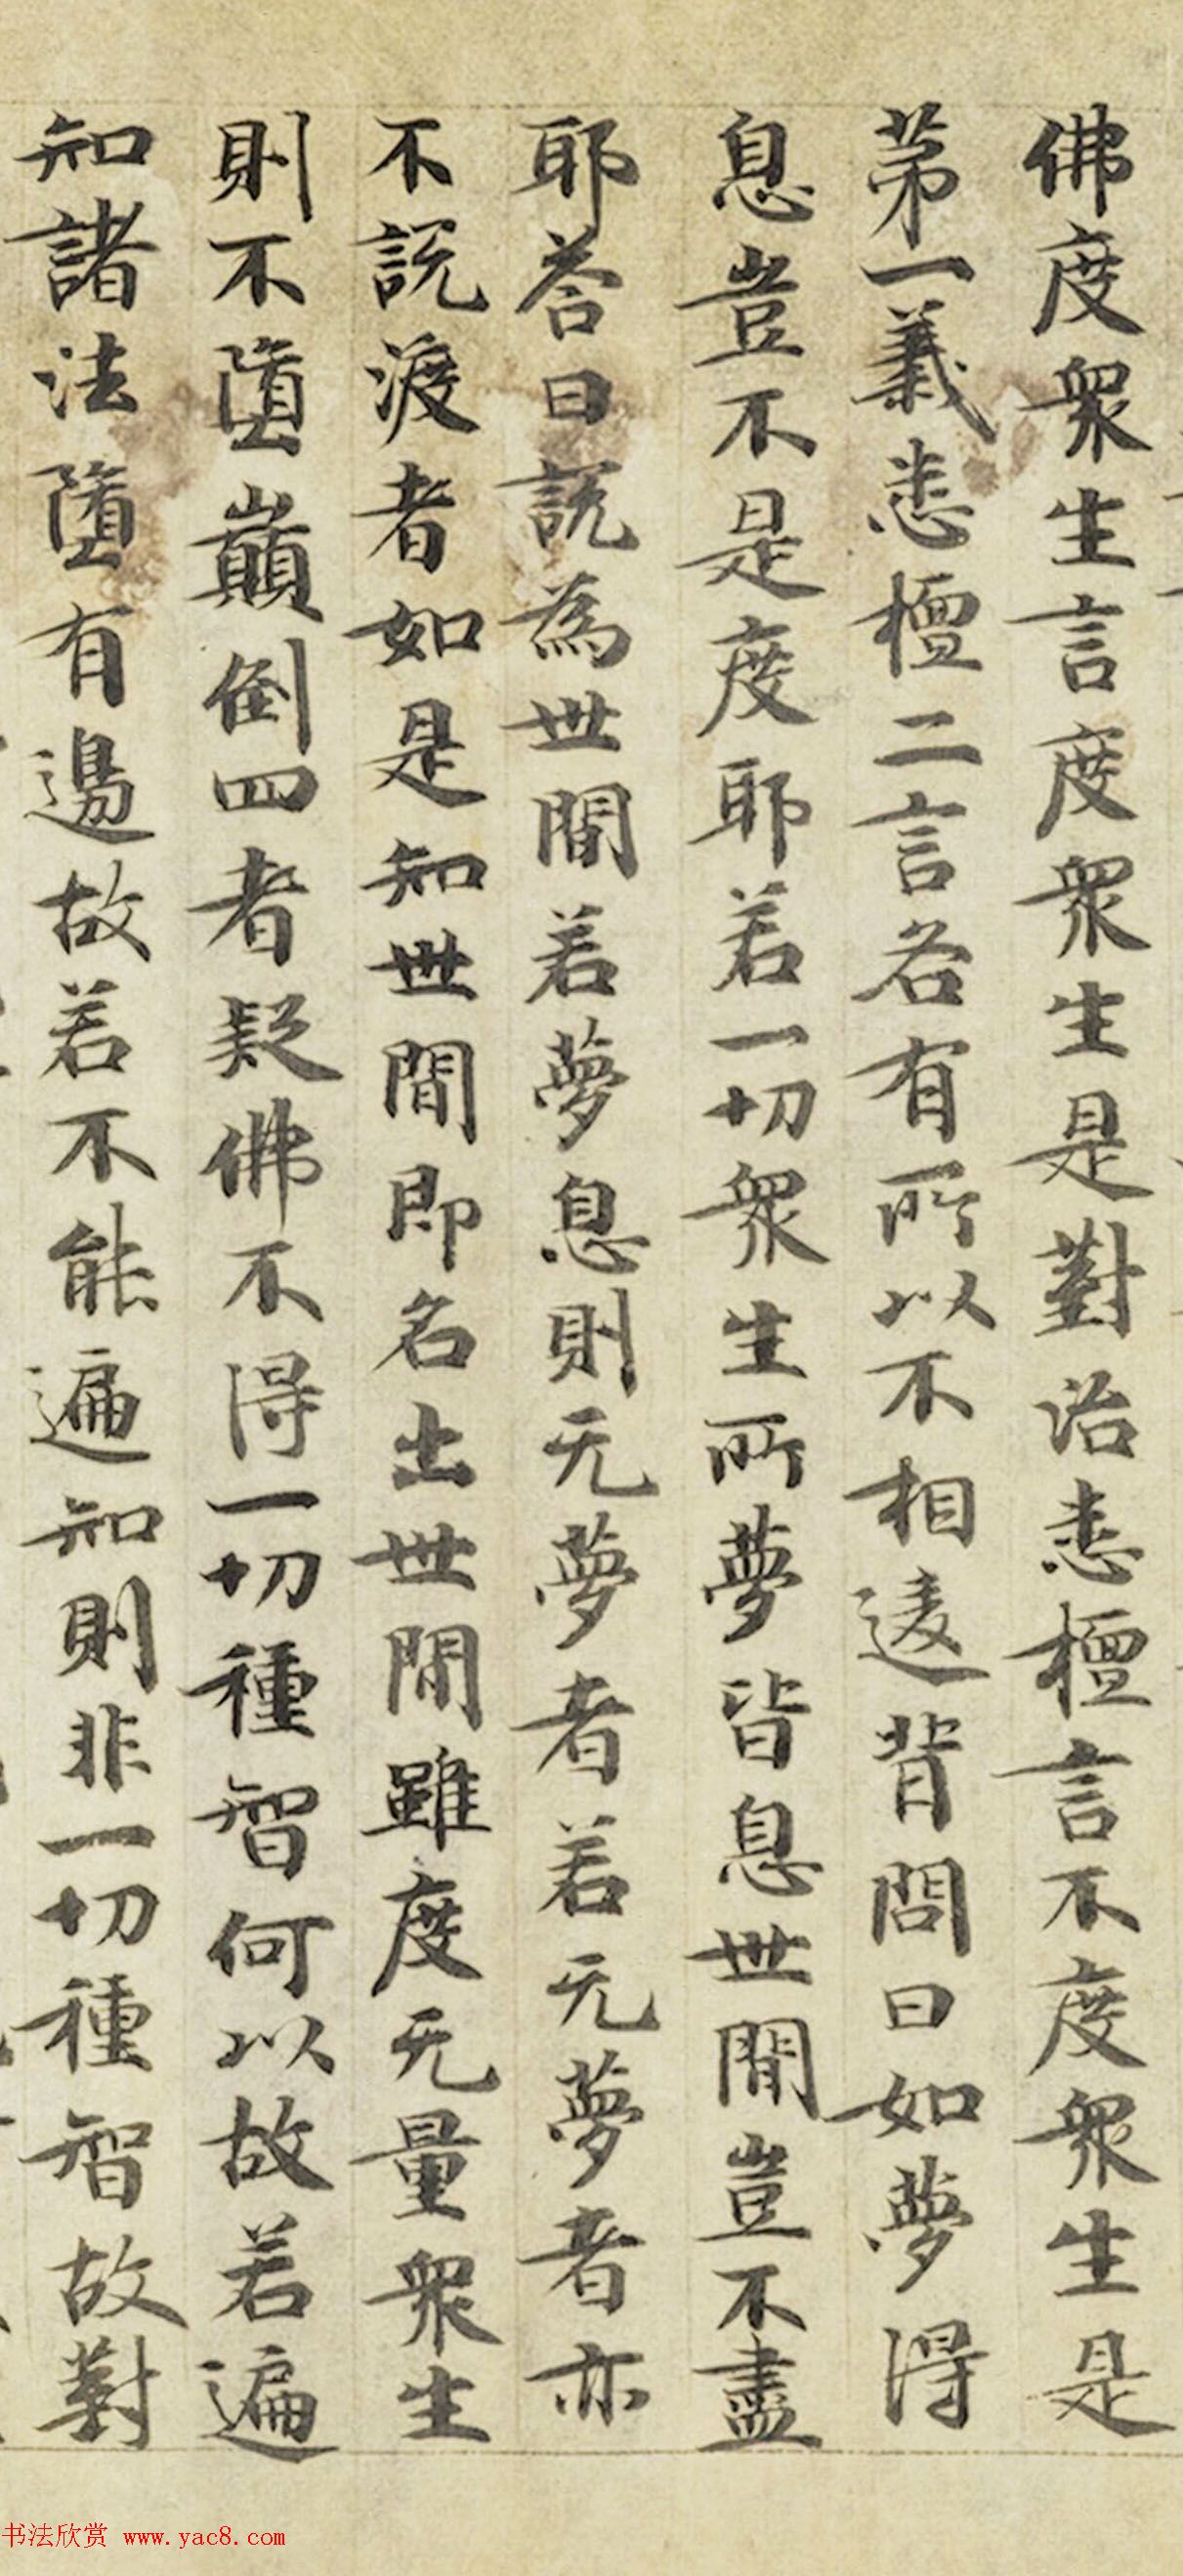 佛度衆生言度衆生是對治悉檀言不度衆生是
第一義悉檀二言各有所以不相違背問曰如夢得
息豈不是度耶若一切衆生所夢皆息世間豈不盡
耶荅曰說為世間若夢息則无夢者若无夢者亦
不說渡者如是知世間即名出世間雖度无量衆生
則不墮巔倒四者疑佛不得一切種智何以故若遍
知諸法墮有邊故若不能遍知則非一切種智故對
书法欣赏 www.yac8.com